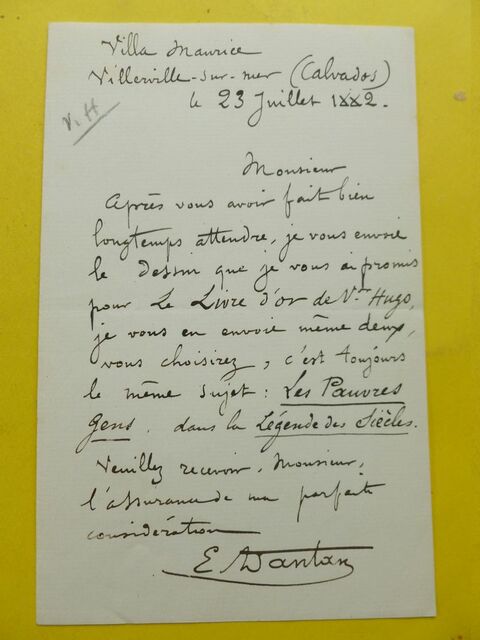 Villa Maurice
Villerville-sur-mer (Calvados)
le 23 Juillet 1882.
V. H
Monsieur
Après vous avoir fait bien
longtemps attendre, je vous envoie
le dessin que je vous ai promis
pour Le Livre d'or de Vor Hugo,
je vous en envoie même deux,
vous choisirez, c'est toujours
le même sujet : Les Pauvres
Gens, dans la Légende des Siècles.
Veuillez recevoir, Monsieur,
l'assurance de ma parfaite
considération
E Dantan